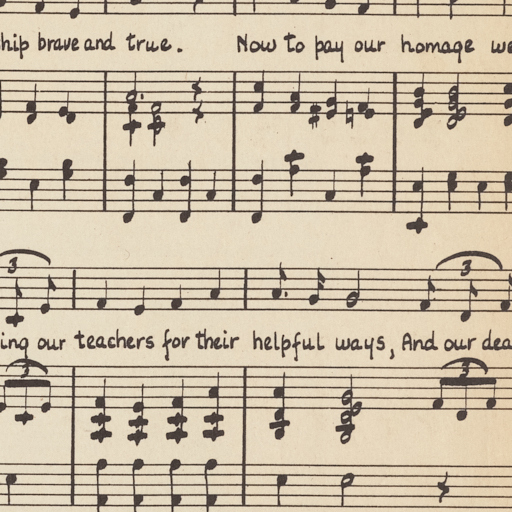 hip brave and true. Now to pay our homage we
3 3
ing our teachers for their helpful ways, And our dea
3 3